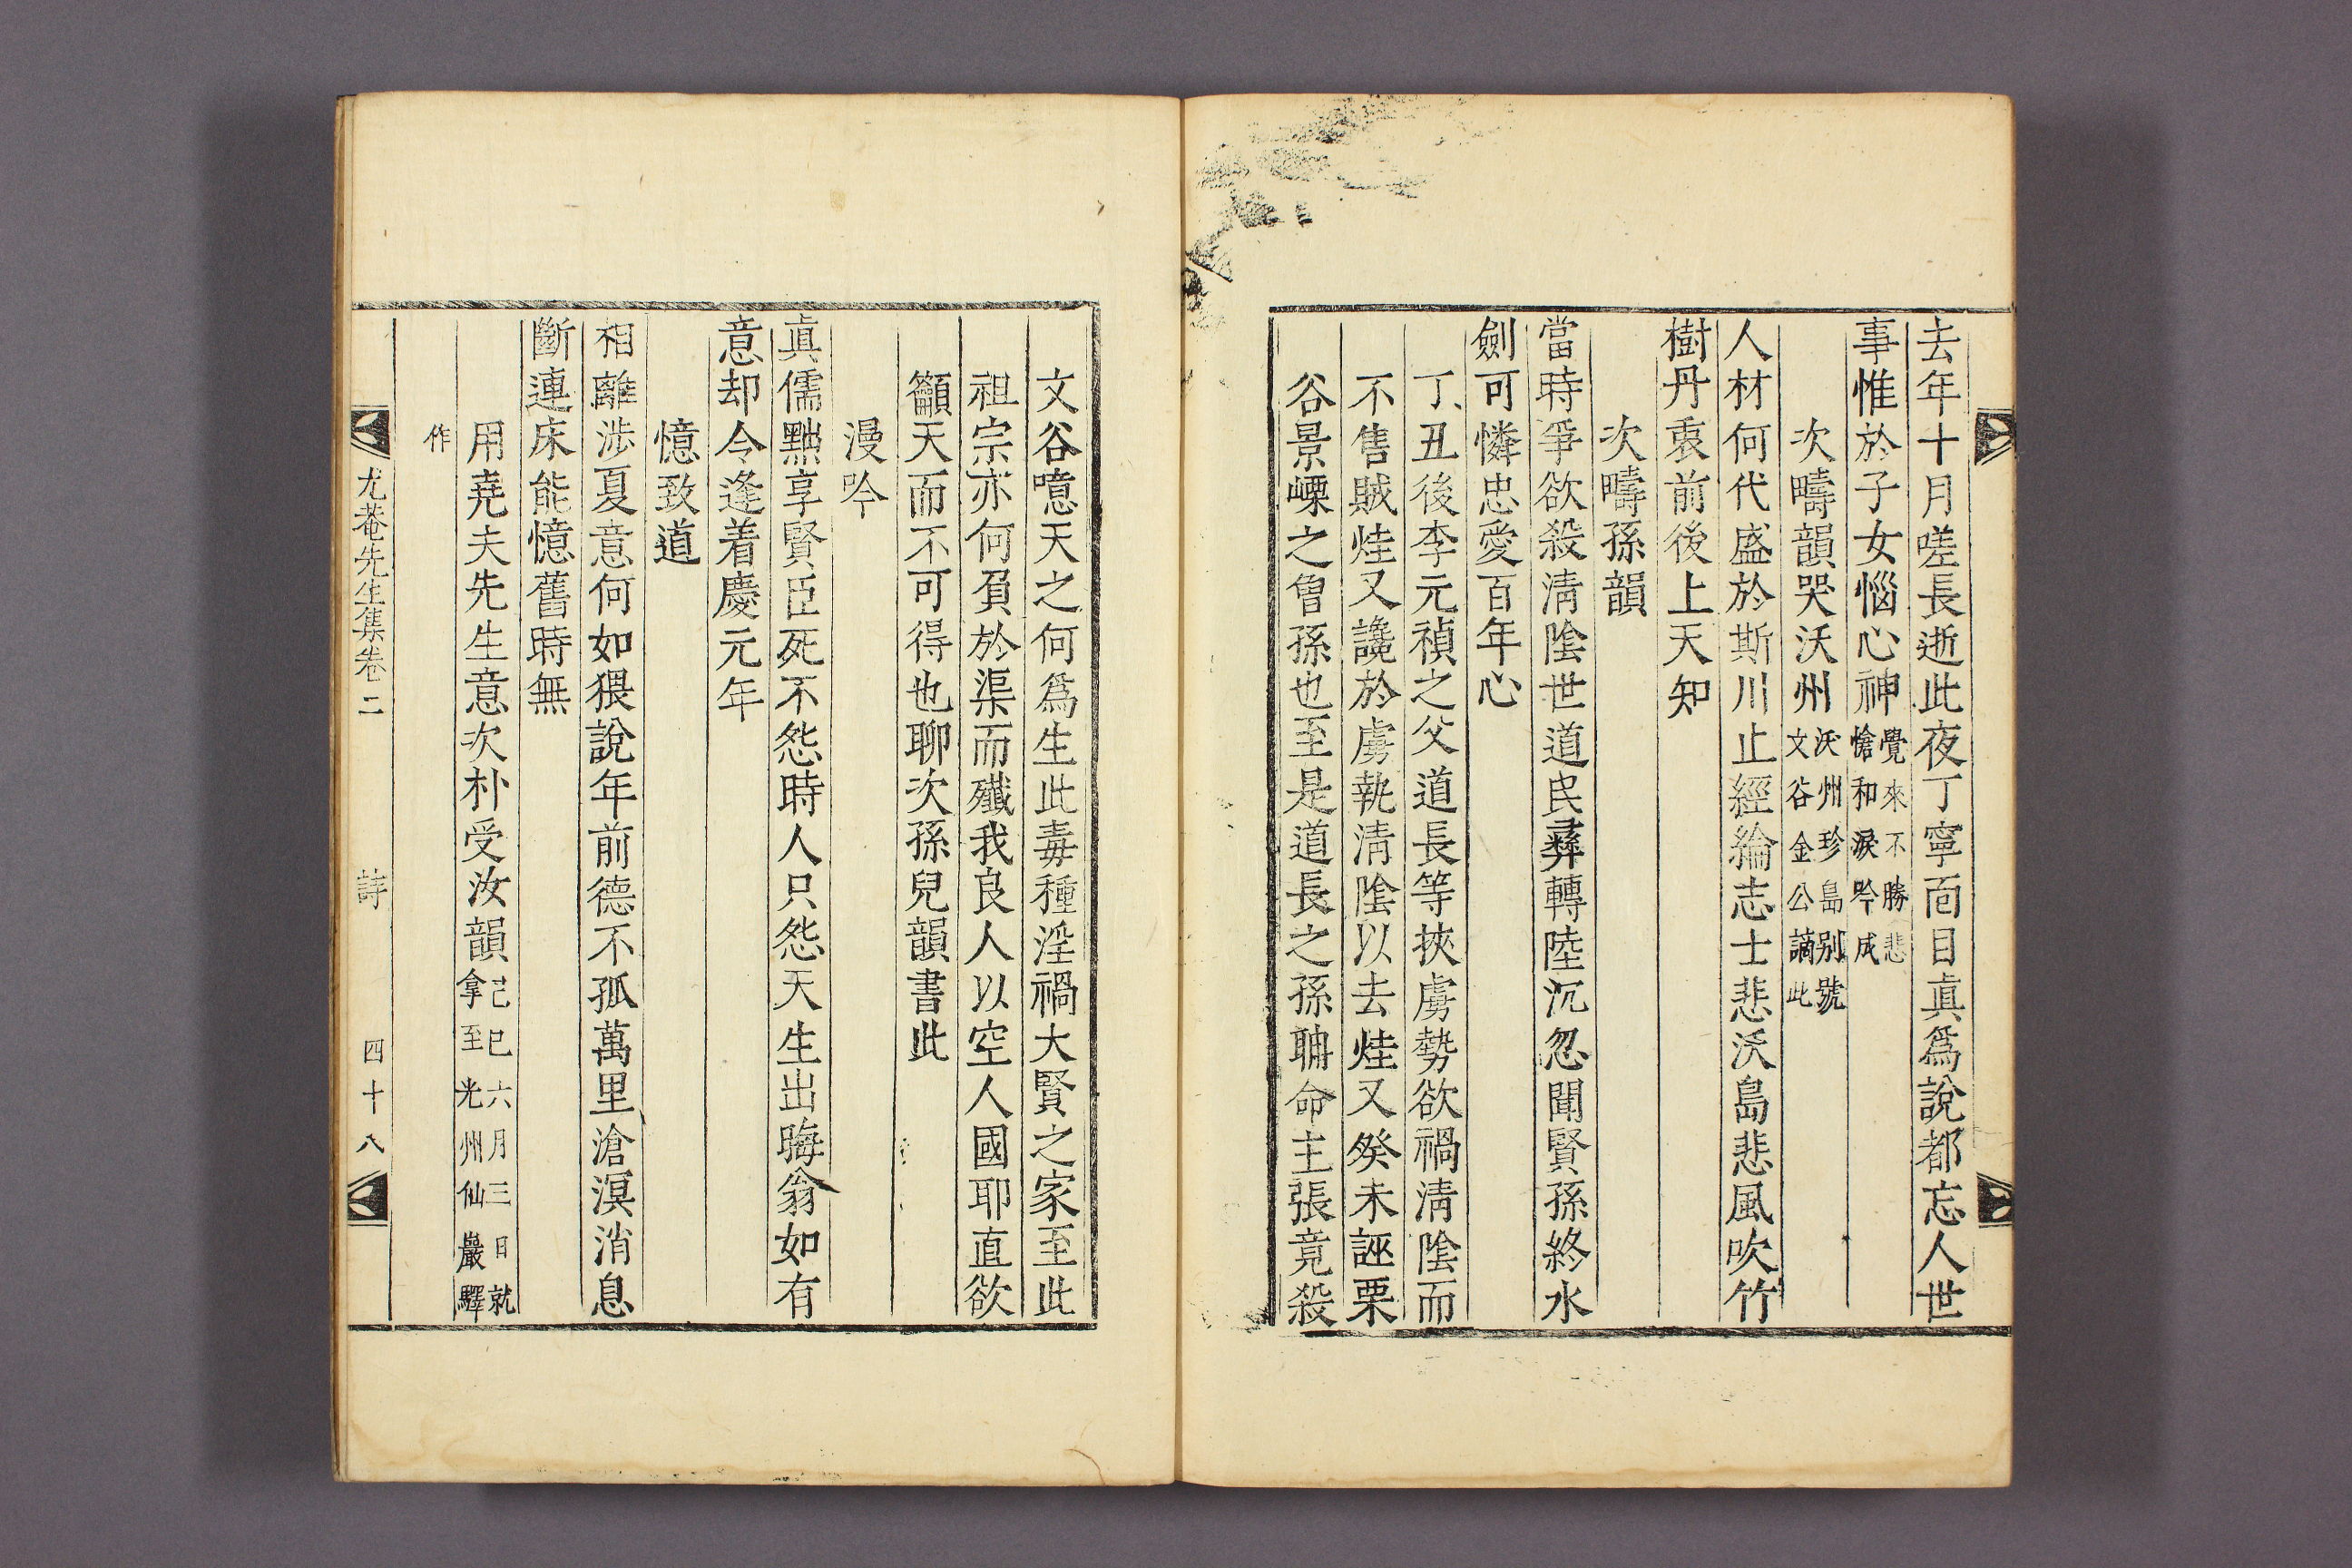 去年十月嗟長逝此夜丁寧面目眞爲說都忘人世
事惟於子女惱心神覺來不勝悲愴和淚吟成
次疇韻哭沃州沃州珍島別號文谷金公謫此
人材何代盛於斯川止經綸志士悲沃島悲風吹竹
樹丹衷前後上天知
次疇孫韻
當時爭欲殺淸陰世道民彛轉陸沉忽聞賢孫終水
劍可憐忠愛百年心
丁丑後李元禎之父道長等挾虜勢欲禍淸陰而
不售賊烓又讒於虜執淸陰以去烓又癸未誣栗
谷景㟳之曾孫也至是道長之孫聃命主張竟殺
文谷噫天之何爲生此毒種淫禍大賢之家至此
祖宗亦何負於渠而殲我良人以空人國耶直欲
籲天而不可得也聊次孫兒韻書此
漫吟
眞儒黜享賢臣死不怨時人只怨天生出晦翁如有
意却令逢着慶元年
憶致道
相離涉夏意何如猥說年前德不孤萬里滄溟消息
斷連床能憶舊時無
用堯夫先生意次朴受汝韻己巳六月三日就拿至光州仙巖驛
作
尤菴先生集卷二 詩 四十八